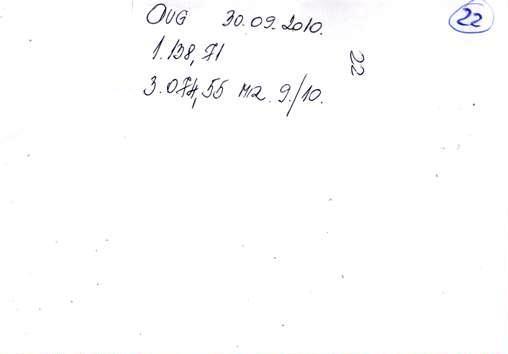 OVG 30.09.2010.
22
1.138,71
22
3.074,55 MR. 9./10.